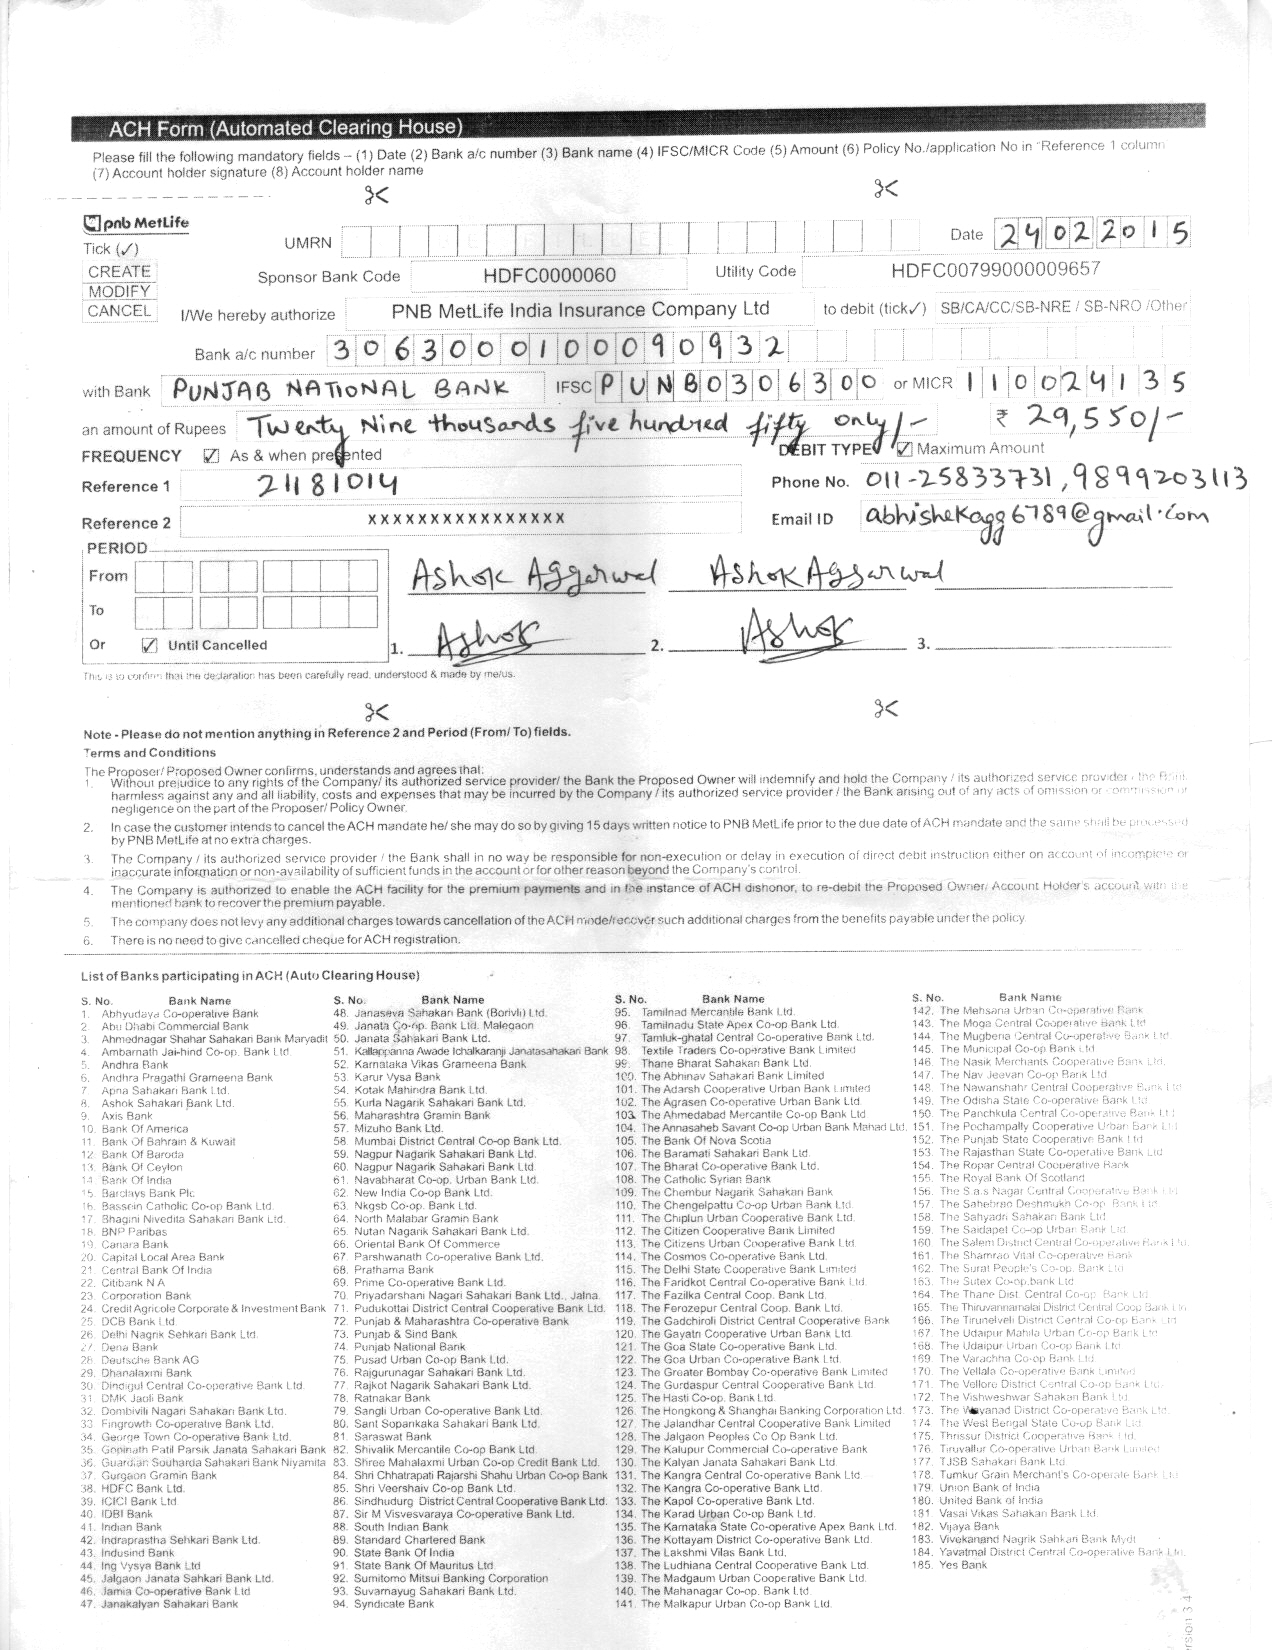 ACH Form (Automated Clearing House)
Please fill the following mandatory fields – (1) Date (2) Bank a/c number (3) Bank name (4) IFSC/MICR Code (5) Amount (6) Policy No./application No in "Reference 1 column
(7) Account holder signature (8) Account holder name
pnb MetLife
Tick (✓)
UMRN
Date 24022015
CREATE
Sponsor Bank Code HDFC0000060 Utility Code HDFC00799000009657
MODIFY
CANCEL
I/We hereby authorize PNB MetLife India Insurance Company Ltd to debit (tick✓) SB/CA/CC/SB-NRE / SB-NRO /Other
Bank a/c number 3063000100090932
with Bank PUNJAB NATIONAL BANK IFSC PUNB0306300 or MICR 110024135
an amount of Rupees Twenty Nine thousands five hundred fifty only/- ₹ 29,550/-
FREQUENCY ☑ As & when presented DEBIT TYPE ☑ Maximum Amount
Reference 1 21181014 Phone No. 011-25833731, 9899203113
Reference 2 XXXXXXXXXXXXXXXX Email ID abhishekagg6789@gmail.com
PERIOD
From Ashok Aggarwal Ashok Aggarwal
To
Or ☑ Until Cancelled 1. Ashok 2. Ashok 3.
This is to confirm that the declaration has been carefully read, understood & made by me/us.
Note - Please do not mention anything in Reference 2 and Period (From/ To) fields.
Terms and Conditions
The Proposer/ Proposed Owner confirms, understands and agrees that:
1. Without prejudice to any rights of the Company/ its authorized service provider/ the Bank the Proposed Owner will indemnify and hold the Company / its authorized service provider / the Bank,
harmless against any and all liability, costs and expenses that may be incurred by the Company / its authorized service provider / the Bank arising out of any acts of omission or commission or
negligence on the part of the Proposer/ Policy Owner.
2. In case the customer intends to cancel the ACH mandate he/ she may do so by giving 15 days written notice to PNB MetLife prior to the due date of ACH mandate and the same shall be processed
by PNB MetLife at no extra charges.
3. The Company / its authorized service provider / the Bank shall in no way be responsible for non-execution or delay in execution of direct debit instruction either on account of incomplete or
inaccurate information or non-availability of sufficient funds in the account or for other reason beyond the Company's control.
4. The Company is authorized to enable the ACH facility for the premium payments and in the instance of ACH dishonor, to re-debit the Proposed Owner/ Account Holder's account with the
mentioned bank to recover the premium payable.
5. The company does not levy any additional charges towards cancellation of the ACH mode/recover such additional charges from the benefits payable under the policy
6. There is no need to give cancelled cheque for ACH registration.
List of Banks participating in ACH (Auto Clearing House)
S. No. Bank Name
1. Abhyudaya Co-operative Bank
2. Abu Dhabi Commercial Bank
3. Ahmednagar Shahar Sahakari Bank Maryadit
4. Ambarnath Jai-hind Co-op. Bank Ltd.
5. Andhra Bank
6. Andhra Pragathi Grameena Bank
7. Apna Sahakari Bank Ltd.
8. Ashok Sahakari Bank Ltd.
9. Axis Bank
10. Bank Of America
11. Bank Of Bahrain & Kuwait
12. Bank Of Baroda
13. Bank Of Ceylon
14. Bank Of India
15. Barclays Bank Plc
16. Bassein Catholic Co-op Bank Ltd.
17. Bhagini Nivedita Sahakari Bank Ltd.
18. BNP Paribas
19. Canara Bank
20. Capital Local Area Bank
21. Central Bank Of India
22. Citibank N A
23. Corporation Bank
24. Credit Agricole Corporate & Investment Bank
25. DCB Bank Ltd.
26. Delhi Nagrik Sehkari Bank Ltd.
27. Dena Bank
28. Deutsche Bank AG
29. Dhanalaxmi Bank
30. Dindigul Central Co-operative Bank Ltd.
31. DMK Jaoli Bank
32. Dombivili Nagari Sahakari Bank Ltd.
33. Fingrowth Co-operative Bank Ltd.
34. George Town Co-operative Bank Ltd.
35. Gopinath Patil Parsik Janata Sahakari Bank
36. Guardian Souharda Sahakari Bank Niyamita
37. Gurgaon Gramin Bank
38. HDFC Bank Ltd.
39. ICICI Bank Ltd
40. IDBI Bank
41. Indian Bank
42. Indraprastha Sehkari Bank Ltd.
43. Indusind Bank
44. Ing Vysya Bank Ltd
45. Jalgaon Janata Sahkari Bank Ltd.
46. Jamia Co-operative Bank Ltd
47. Janakalyan Sahakari Bank
S. No. Bank Name
48. Janaseva Sahakari Bank (Borivli) Ltd.
49. Janata Co-op. Bank Ltd. Malegaon
50. Janata Sahakari Bank Ltd.
51. Kallappanna Awade Ichalkaranji Janatasahakari Bank
52. Karnataka Vikas Grameena Bank
53. Karur Vysa Bank
54. Kotak Mahindra Bank Ltd.
55. Kurla Nagarik Sahakari Bank Ltd.
56. Maharashtra Gramin Bank
57. Mizuho Bank Ltd.
58. Mumbai District Central Co-op Bank Ltd.
59. Nagpur Nagarik Sahakari Bank Ltd.
60. Nagpur Nagarik Sahakari Bank Ltd.
61. Navabharat Co-op. Urban Bank Ltd.
62. New India Co-op Bank Ltd.
63. Nkgsb Co-op. Bank Ltd.
64. North Malabar Gramin Bank
65. Nutan Nagarik Sahakari Bank Ltd.
66. Oriental Bank Of Commerce
67. Parshwanath Co-operative Bank Ltd
68. Prathama Bank
69. Prime Co-operative Bank Ltd.
70. Priyadarshani Nagari Sahakari Bank Ltd., Jalna.
71. Pudukottai District Central Cooperative Bank Ltd.
72. Punjab & Maharashtra Co-operative Bank
73. Punjab & Sind Bank
74. Punjab National Bank
75. Pusad Urban Co-op Bank Ltd.
76. Rajgurunagar Sahakari Bank Ltd.
77. Rajkot Nagarik Sahakari Bank Ltd.
78. Ratnakar Bank
79. Sangli Urban Co-operative Bank Ltd.
80. Sant Sopankaka Sahakari Bank Ltd.
81. Saraswat Bank
82. Shivalik Mercantile Co-op Bank Ltd.
83. Shree Mahalaxmi Urban Co-op Credit Bank Ltd.
84. Shri Chhatrapati Rajarshi Shahu Urban Co-op Bank
85. Shri Veershaiv Co-op Bank Ltd.
86. Sindhudurg District Central Cooperative Bank Ltd.
87. Sir M Visvesvaraya Co-operative Bank Ltd.
88. South Indian Bank
89. Standard Chartered Bank
90. State Bank Of India
91. State Bank Of Mauritus Ltd
92. Sumitomo Mitsui Banking Corporation
93. Suvarnayug Sahakari Bank Ltd.
94. Syndicate Bank
S. No. Bank Name
95. Tamilnad Mercantile Bank Ltd.
96. Tamilnadu State Apex Co-op Bank Ltd.
97. Tamluk-ghatal Central Co-operative Bank Ltd.
98. Textile Traders Co-operative Bank Limited
99. Thane Bharat Sahakari Bank Ltd.
100. The Abhinav Sahakari Bank Limited
101. The Adarsh Cooperative Urban Bank Limited
102. The Agrasen Co-operative Urban Bank Ltd.
103. The Ahmedabad Mercantile Co-op Bank Ltd
104. The Annasaheb Savant Co-op Urban Bank Mahad Ltd.
105. The Bank Of Nova Scotia
106. The Baramati Sahakari Bank Ltd.
107. The Bharat Co-operative Bank Ltd.
108. The Catholic Syrian Bank
109. The Chembur Nagarik Sahakari Bank
110. The Chengelpattu Co-op Urban Bank Ltd.
111. The Chiplun Urban Cooperative Bank Ltd.
112. The Citizen Cooperative Bank Limited
113. The Citizens Urban Cooperative Bank Ltd.
114. The Cosmos Co-operative Bank Ltd.
115. The Delhi State Cooperative Bank Ltd.
116. The Faridkot Central Co-operative Bank Ltd.
117. The Fazilka Central Coop. Bank Ltd.
118. The Ferozepur Central Coop. Bank Ltd.
119. The Gadchiroli District Central Cooperative Bank
120. The Gayatri Cooperative Urban Bank Ltd.
121. The Goa State Co-operative Bank Ltd.
122. The Goa Urban Co-operative Bank Ltd.
123. The Greater Bombay Co-operative Bank Limited
124. The Gurdaspur Central Cooperative Bank Ltd.
125. The Hasti Co-op. Bank Ltd.
126. The Hongkong & Shanghai Banking Corporation Ltd.
127. The Jalandhar Central Cooperative Bank Limited
128. The Jalgaon Peoples Co Op Bank Ltd.
129. The Kalupur Commercial Co-operative Bank
130. The Kalyan Janata Sahakari Bank Ltd.
131. The Kangra Central Co-operative Bank Ltd.
132. The Kangra Co-operative Bank Ltd.
133. The Kapol Co-operative Bank Ltd.
134. The Karad Urban Co-op Bank Ltd.
135. The Karnataka State Co-operative Apex Bank Ltd.
136. The Kottayam District Co-operative Bank Ltd.
137. The Lakshmi Vilas Bank Ltd.
138. The Ludhiana Central Cooperative Bank Ltd.
139. The Madgaum Urban Cooperative Bank Ltd.
140. The Mahanagar Co-op. Bank Ltd
141. The Malkapur Urban Co-op Bank Ltd.
S. No. Bank Name
142. The Mehsana Urban Co-operative Bank
143. The Moga Central Cooperative Bank Ltd
144. The Mugberia Central Co-operative Bank Ltd
145. The Municipal Co-op Bank Ltd
146. The Nasik Merchants Cooperative Bank Ltd.
147. The Nav Jeevan Co-op Bank Ltd
148. The Nawanshahr Central Cooperative Bank Ltd.
149. The Odisha State Co-operative Bank Ltd.
150. The Panchkula Central Co-operative Bank Ltd
151. The Pochampally Cooperative Urban Bank Ltd
152. The Punjab State Cooperative Bank Ltd
153. The Rajasthan State Co-operative Bank Ltd
154. The Ropar Central Cooperative Bank
155. The Royal Bank Of Scotland
156. The S.a.s Nagar Central Cooperative Bank Ltd
157. The Sahebrao Deshmukh Co-op Bank Ltd
158. The Sahyadri Sahakari Bank Ltd
159. The Saidapet Co-op Urban Bank Ltd
160. The Salem District Central Co-operative Bank Ltd.
161. The Shamrao Vital Co-operative Bank
162. The Surat People's Co-op. Bank Ltd
163. The Sutex Co-op.bank Ltd
164. The Thane Dist. Central Co-op Bank Ltd
165. The Thiruvannamalai District Central Coop Bank Ltd
166. The Tirunelveli District Central Co-op Bank Ltd.
167. The Udaipur Mahila Urban Co-op Bank Ltd
168. The Udaipur Urban Co-op Bank Ltd.
169. The Varachha Co-op Bank Ltd.
170. The Vellala Co-operative Bank Limited
171. The Vellore District Central Co-op Bank Ltd.
172. The Vishweshwar Sahakari Bank Ltd.
173. The Wayanad District Co-operative Bank Ltd.
174 The West Bengal State Co-op Bank Ltd.
175. Thrissur District Cooperative Bank Ltd.
176. Tiruvallur Co-operative Urban Bank Limited
177. TJSB Sahakari Bank Ltd
178. Tumkur Grain Merchant's Co-operate Bank Ltd
179. Union Bank of India
180. United Bank of India
181. Vasai Vikas Sahakari Bank Ltd.
182. Vijaya Bank
183. Vivekanand Nagrik Sahkari Bank Mydt
184. Yavatmal District Central Co-operative Bank Ltd.
185. Yes Bank